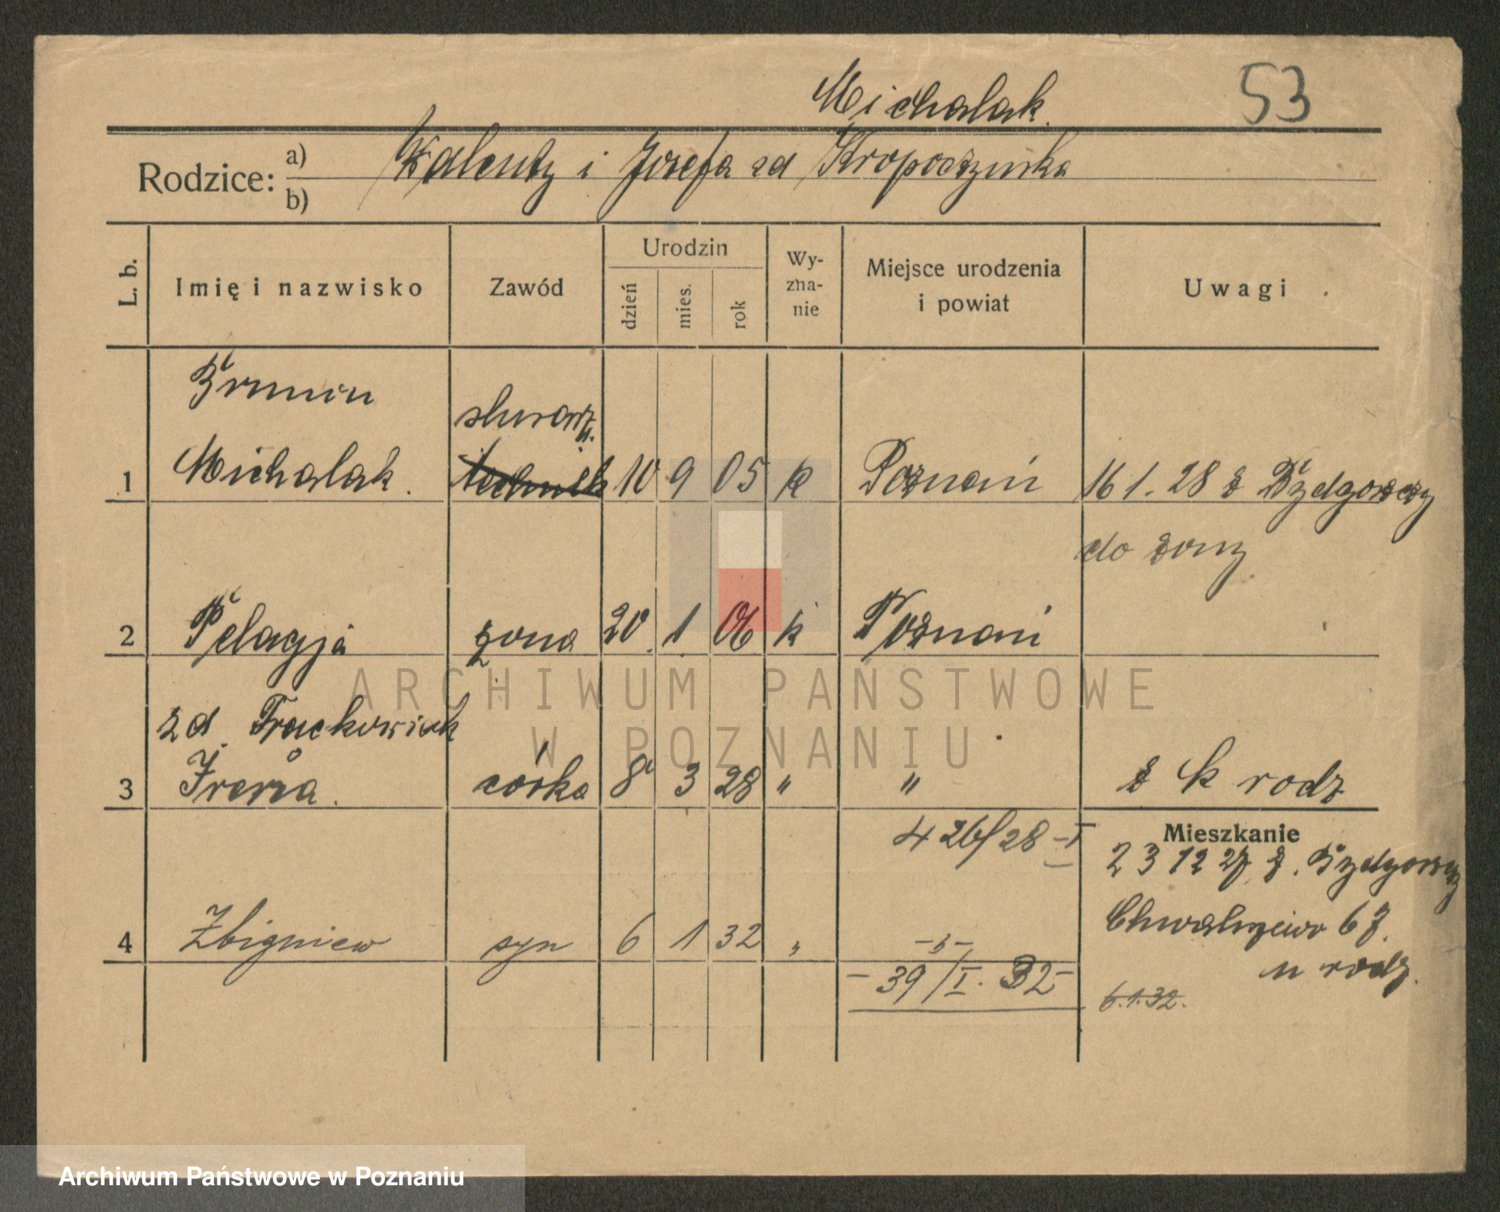 Michalak
53
Rodzice: a) b) Walenty i Józefa zd
L. b.
Imię i nazwisko
Zawód
Urodzin
dzień
mies.
rok
Wy-
zna-
nie
Miejsce urodzenia
i powiat
Uwagi
Brunon
1 Michalak. 10 9 05 k Poznań 16 1. 28 z Bydgoszczy
do żony
2 Pelagja żona 20. 1 06 k Poznań
zd.
3 Irena. córka 8 3 28 " " z k rodz
4 26/28 -I
Mieszkanie
23 12 27 z. Bydgoszczy
Chwaliszewo 67.
u rodz.
4 Zbigniew syn 6 1 32 "
- 39/I. 32 -
6.1.32.
ARCHIWUM PAŃSTWOWE
W POZNANIU
Archiwum Państwowe w Poznaniu